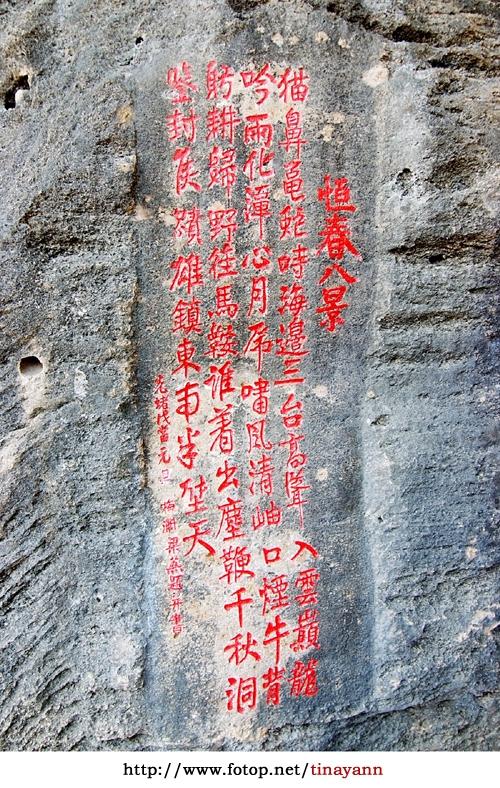 恒春八景
猫鼻龜蛇峙海邊三台高聳入雲巔龍
吟雨化潭心月虎嘯風清岫口煙牛背
躬耕歸野徑馬鞍誰着出塵鞭千秋洞
鑿封侯蹟雄鎮東南半壁天
光緒戊元旦
梁燕題并書
http://www.fotop.net/tinayann